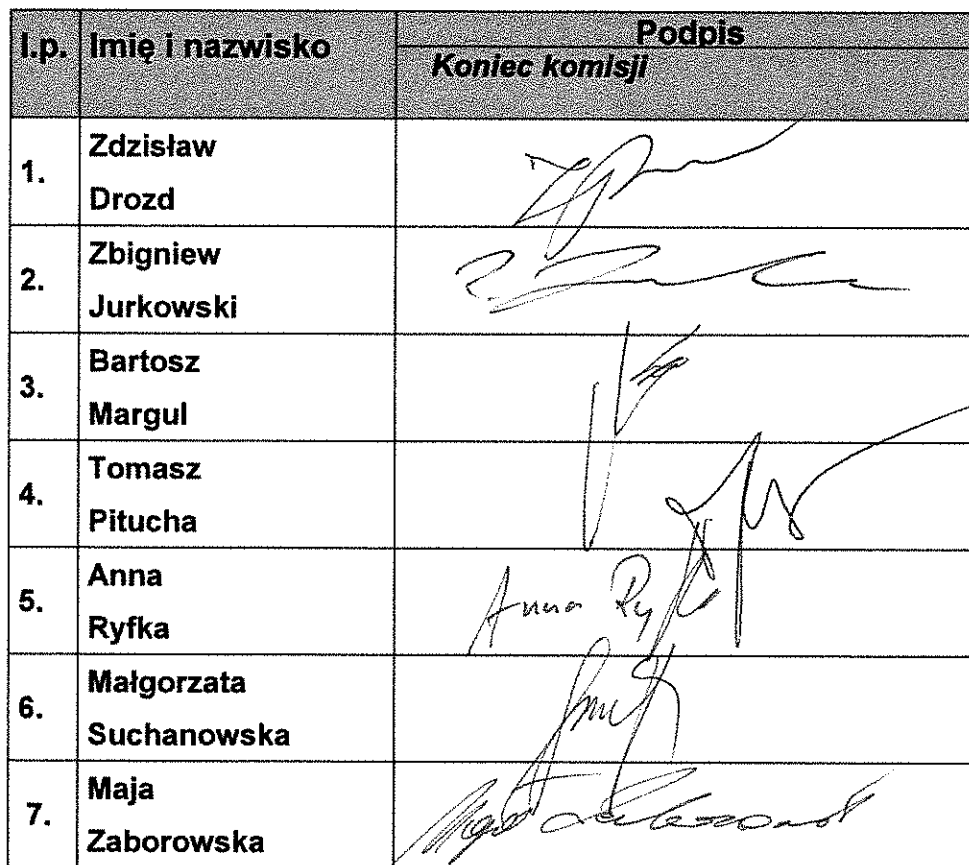 l.p. Imię i nazwisko Podpis
Koniec komisji
1. Zdzisław
Drozd
2. Zbigniew
Jurkowski
3. Bartosz
Margul
4. Tomasz
Pitucha
5. Anna
Ryfka
Anna Ryfka
6. Małgorzata
Suchanowska
7. Maja
Zaborowska